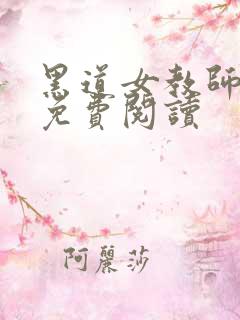 黑道女教師
免費閱讀
阿麗莎